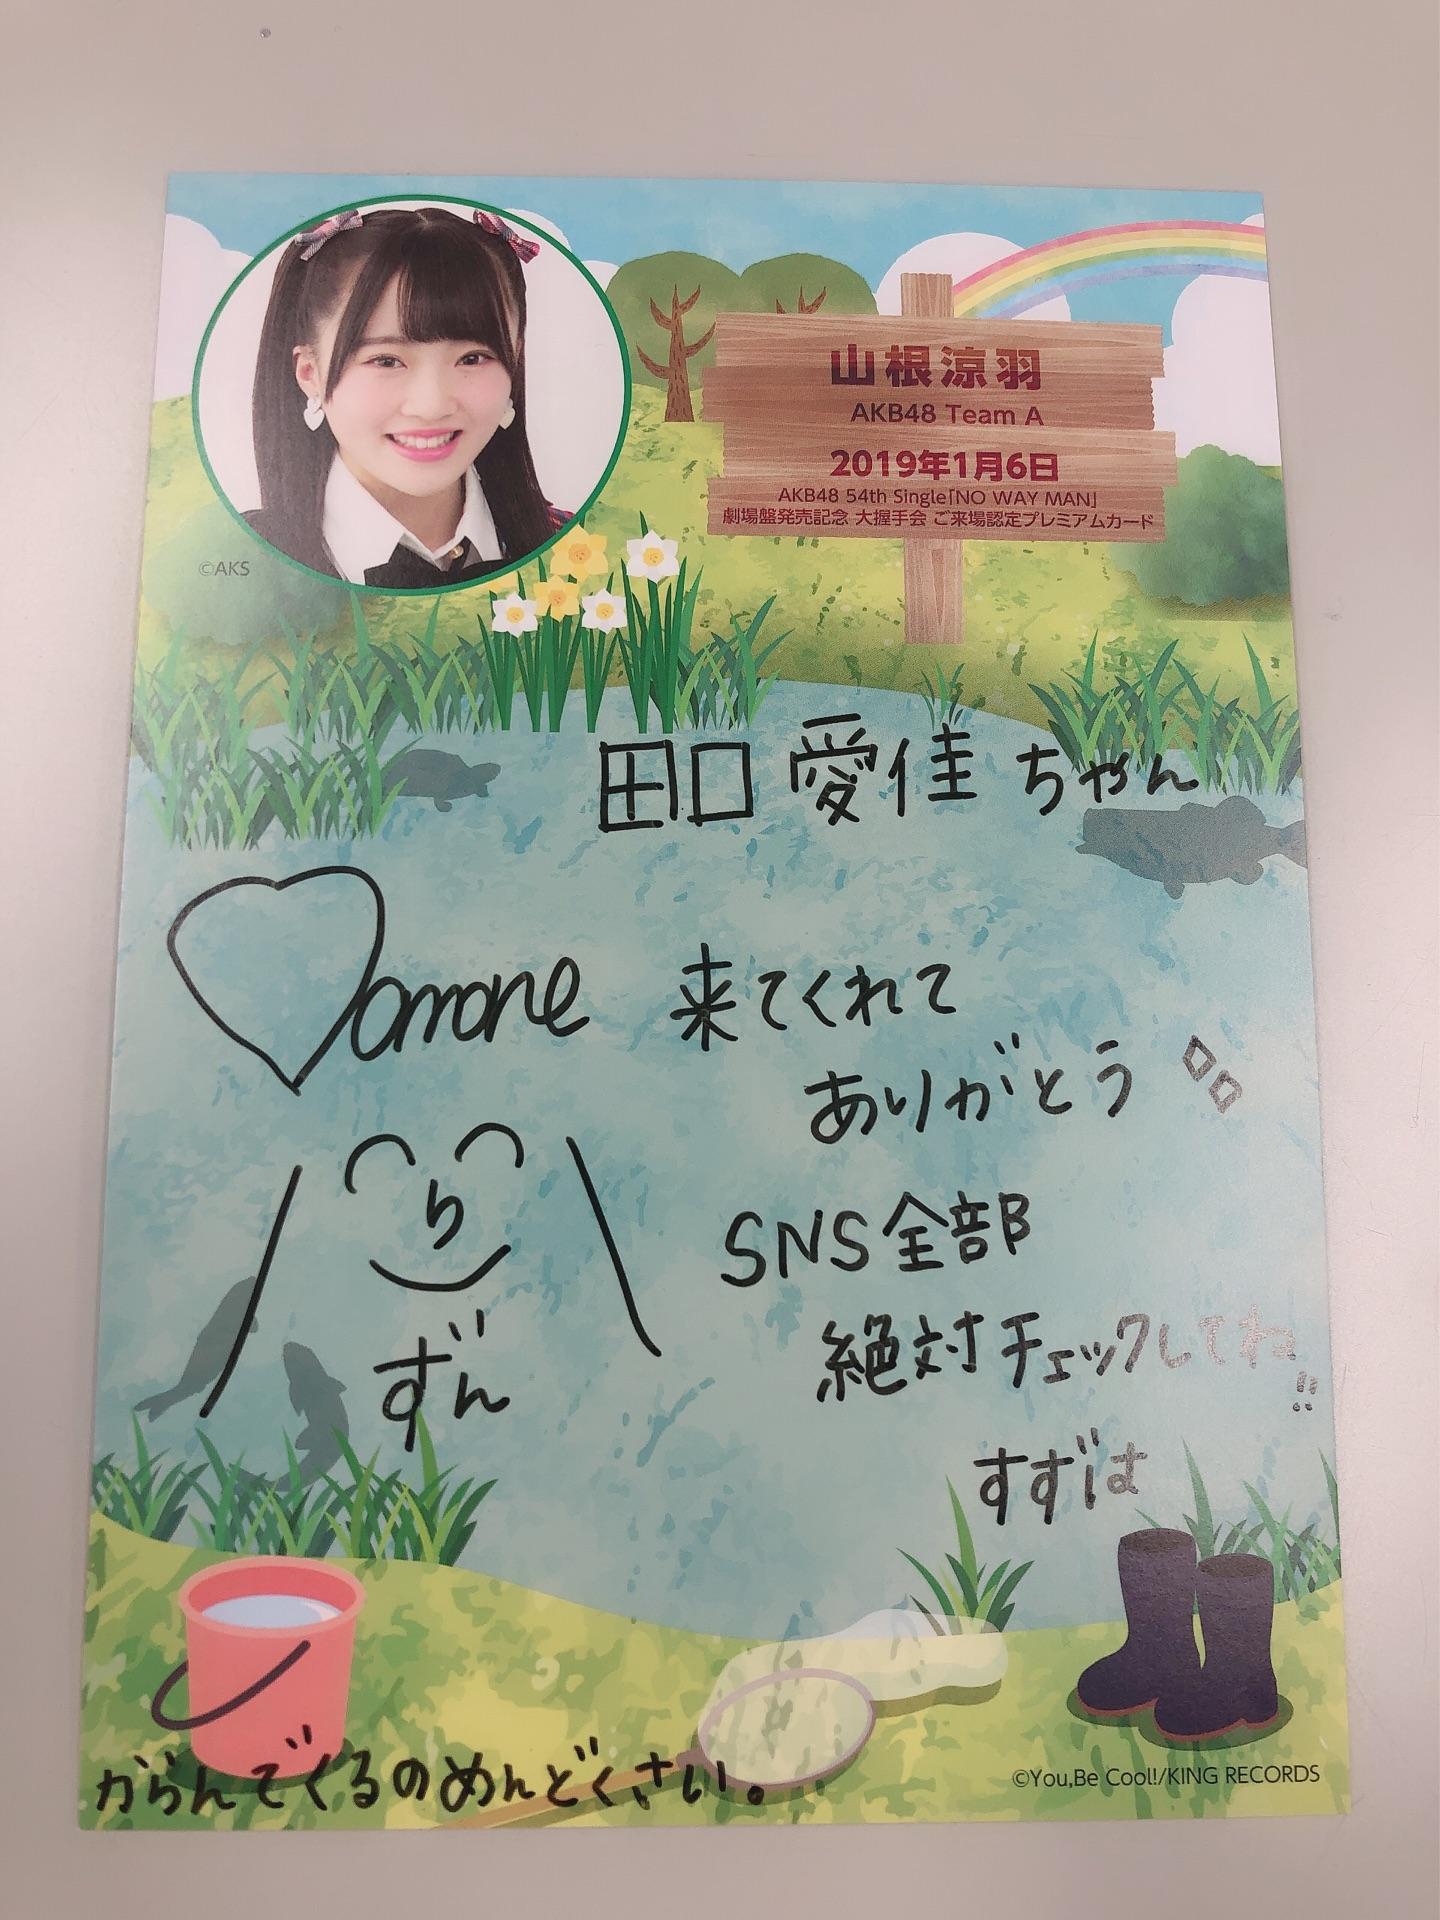 山根涼羽
AKB48 Team A
2019年1月6日
AKB48 54th Single「NO WAY MAN」
劇場盤発売記念 大握手会 ご来場認定プレミアムカード
©AKS
田口愛佳ちゃん
amane
来てくれて
ありがとう
SNS全部
絶対チェックしてね!!
ずん
すずは
がらんでくるのめんどくさい。
©You,Be Cool!/KING RECORDS